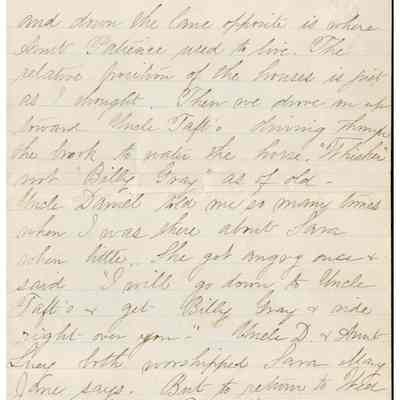 and down the lane opposite is where
Aunt Patience used to live. The
relative position of the houses is just
as I thought. Then we drove on up
toward Uncle Taft's driving through
the brook to water the horse. "Whisker"
not "Billy Gray" as of old -
Uncle Daniel told me so many times
when I was there about Sara
when little. She got angry once &
said "I will go down to Uncle
Taft's & get Billy Gray & ride
right over you." Uncle D. & Aunt
Lucy both worshipped Sara Mary
Jane says. But to return to